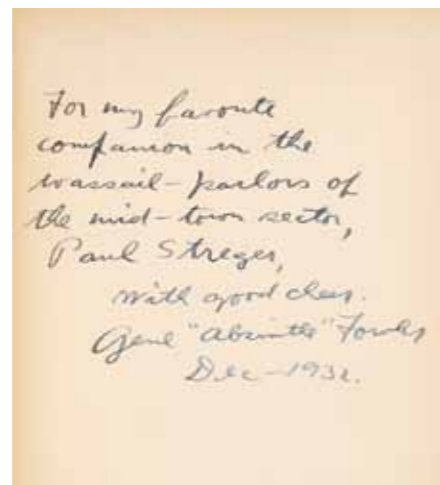 For my favorite
companion in the
wassail-parlors of
the mid-town sector,
Paul Streger,
with good cheer.
Gene "Absinthe" Fowler
Dec-1932.